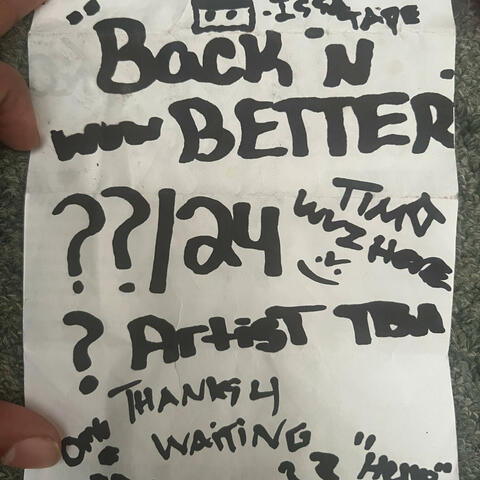 ISSATAPE
"BACK 'N
www BETTER"
??/24
TIMO
WUZ HERE
? Artist TBA
THANKS 4
WAITING